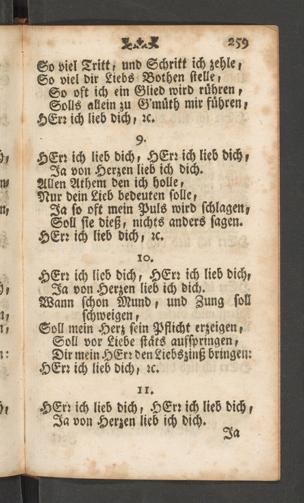 259
So viel Tritt, und Schritt ich zehle,
So viel dir Liebs Bothen stelle,
So oft ich ein Glied wird rühren,
Solls allein zu G'müth mir führen,
HErr ich lieb dich, ꝛc.
9.
HErr ich lieb dich, HErr ich lieb dich,
Ja von Herzen lieb ich dich.
Allen Athem den ich holle,
Nur dein Lieb bedeuten solle,
Ja so oft mein Puls wird schlagen,
Soll sie dieß, nichts anders sagen.
HErr ich lieb dich, ꝛc.
10.
HErr ich lieb dich, HErr ich lieb dich,
Ja von Herzen lieb ich dich.
Wann schon Mund, und Zung soll
schweigen,
Soll mein Herz sein Pflicht erzeigen,
Soll vor Liebe stäts aufspringen,
Dir mein HErr den Liebszinß bringen:
HErr ich lieb dich, ꝛc.
11.
HErr ich lieb dich, HErr ich lieb dich,
Ja von Herzen lieb ich dich.
Ja